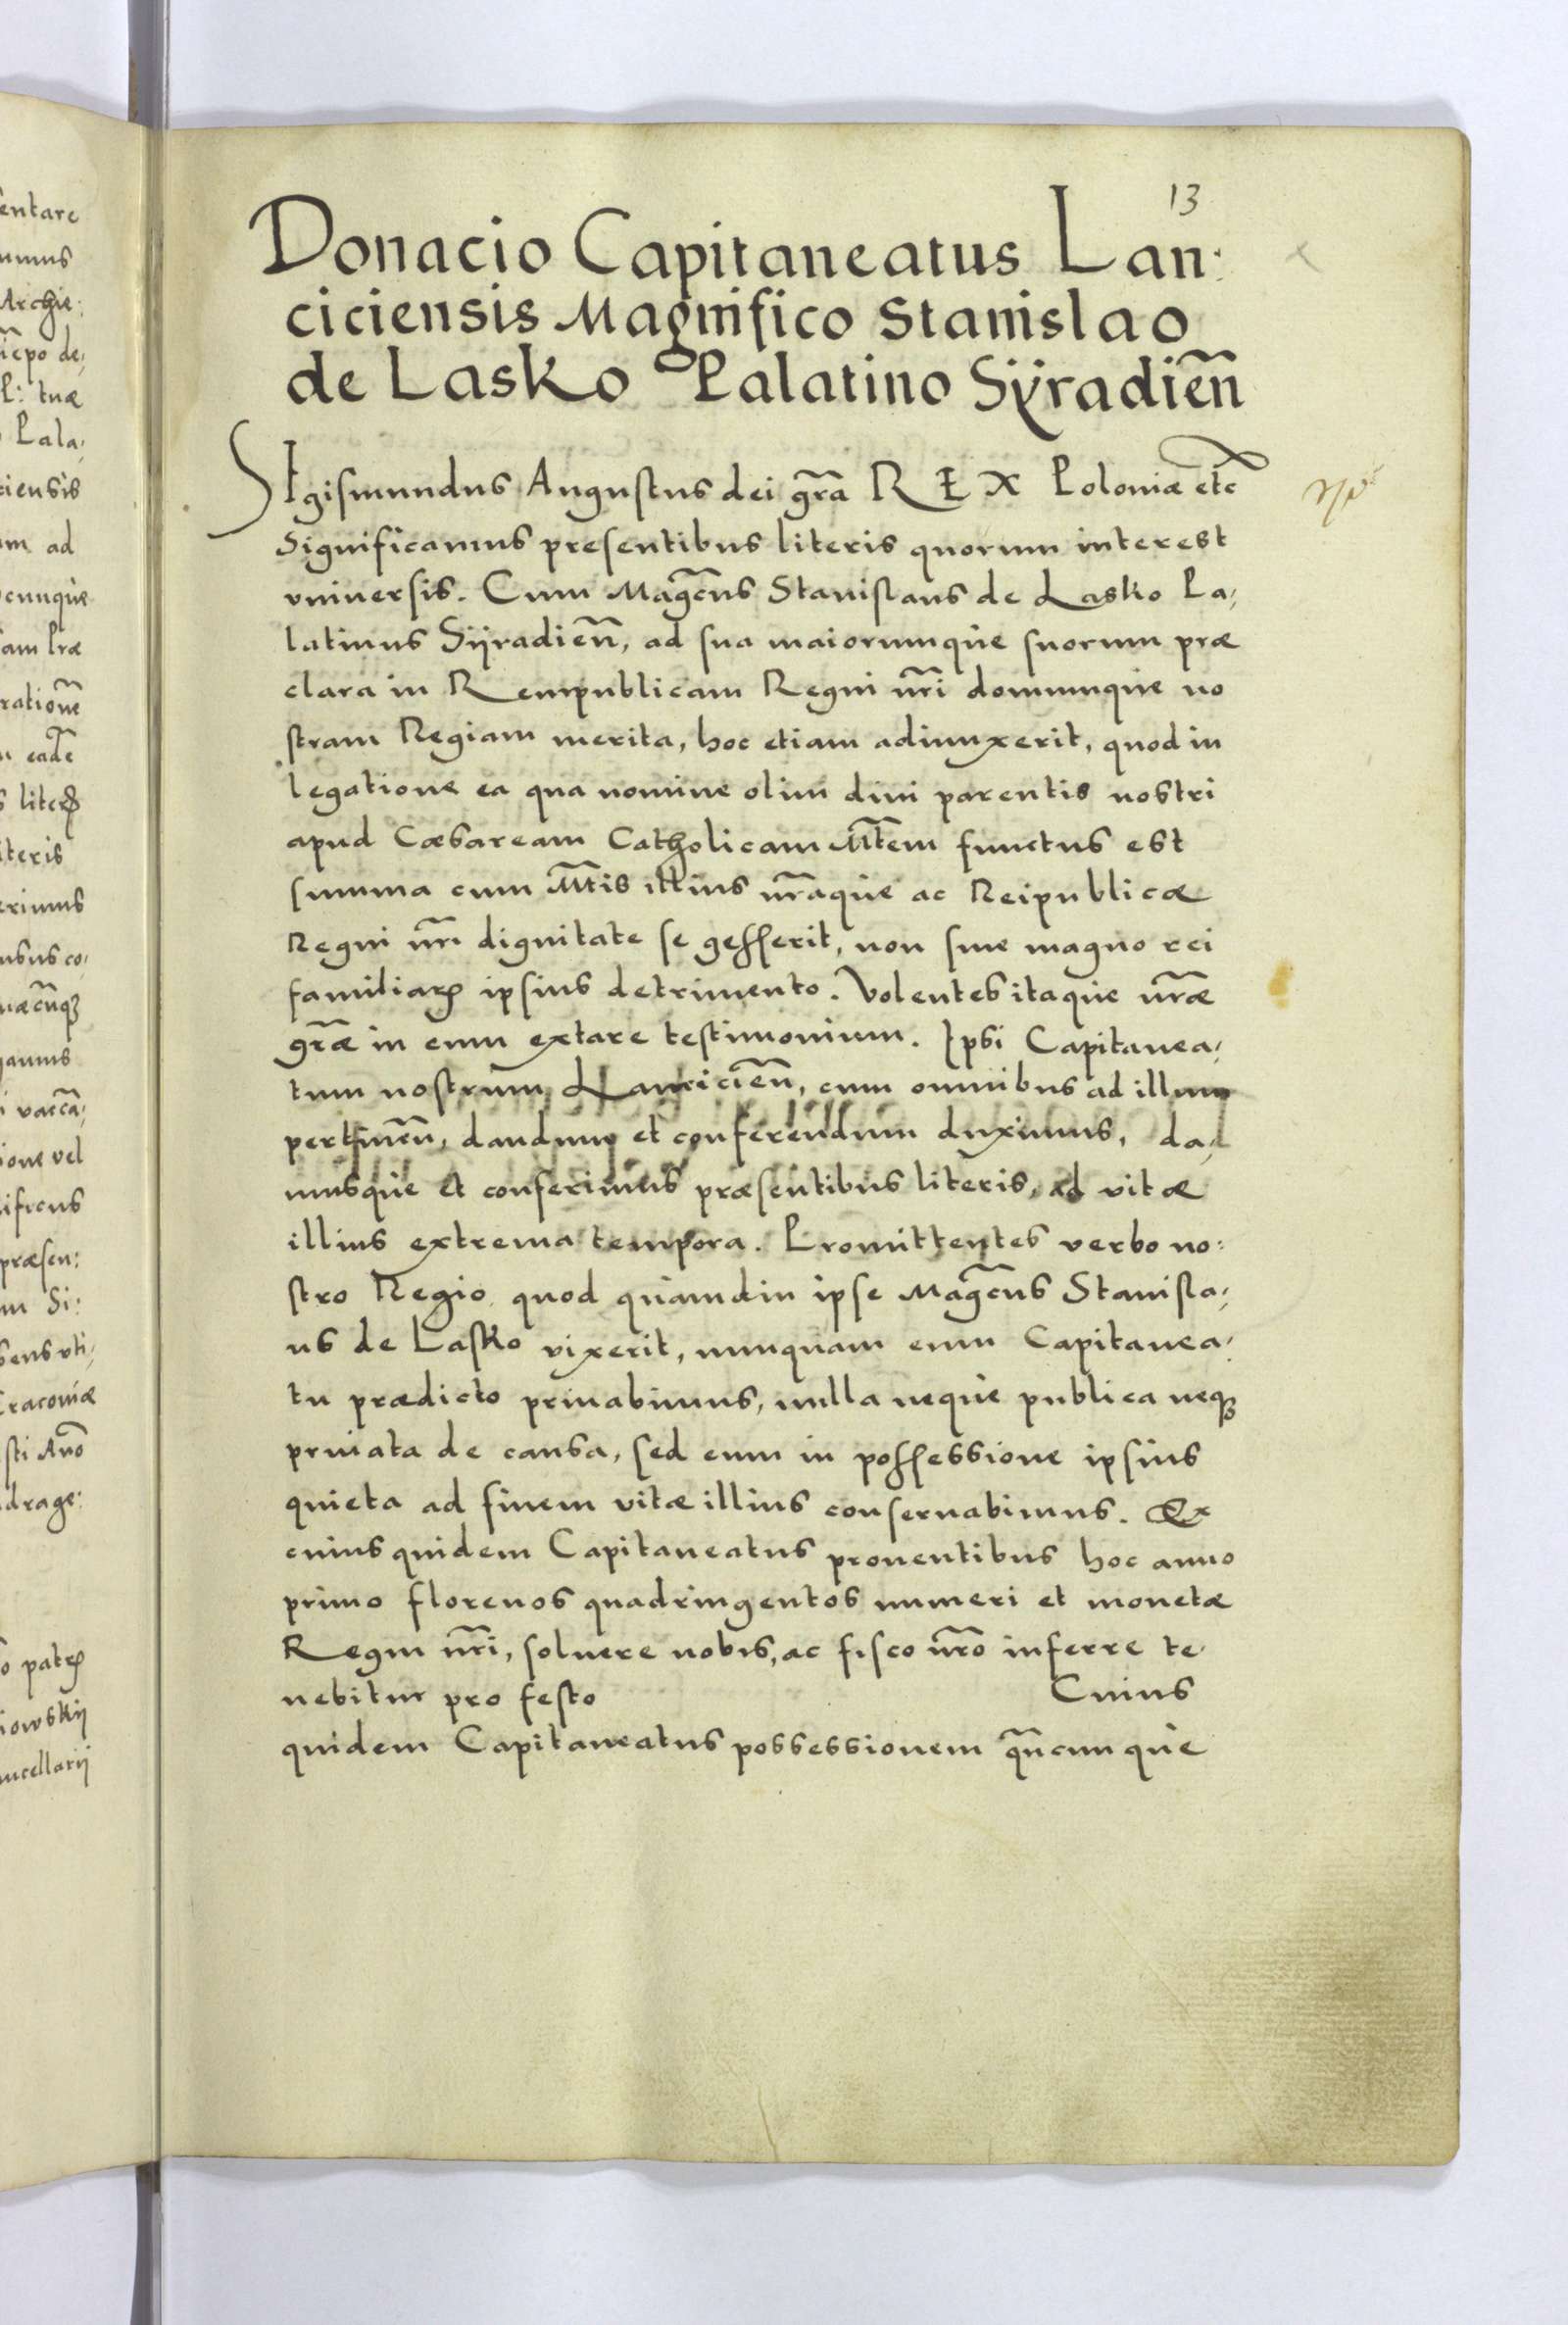 13
Donacio Capitaneatus Lan:
ciciensis Magnifico Stanislao
de Lasko Palatino Sÿradien̄
SIgiſmundus Augustus dei gr̄a REX Poloniæ etc̄
Significamus preſentibus literis quorum interest
vniuerſis. Cum Mag̅cus Stanislaus de Lasko Pa,
latinus Sÿradien̄, ad sua maiorumque suorum præ
clara in Rempublicam Regni nr̄i domumque no
stram Regiam merita, hoc etiam adiunxerit, quod in
legatione ea qua nomine olim diui parentis nostri
apud Cæsaream Catholicam Mt̄em functus est
summa cum Mt̄is illius nr̄aque ac Reipublicæ
Regni nr̄i dignitate se geſſerit, non sine magno rei
familiaꝝ ipſius detrimento. Volentes itaque nr̄æ
gr̄æ in eum extare testimonium. Ipsi Capitanea,
tum nostrum Lancicien̄, cum omnibus ad illum
pertinen̄, dandum et conferendum duximus, da,
musque et conferimus præſentibus literis, ad vitæ
illius extrema tempora. Promittentes verbo no:
stro Regio quod quamdiu ipse Mag̅cus Stanisla,
us de Lasko vixerit, nunquam eum Capitanea,
tu prædicto priuabimus, nulla neque publica neqꝫ
priuata de causa, sed eum in poſſessione ipſius
quieta ad finem vitæ illius conseruabimus. Ex
cuius quidem Capitaneatus prouentibus hoc anno
primo florenos quadringentos numeri et monetæ
Regni nr̄i, soluere nobis, ac fisco nr̄o inferre te,
nebitur pro festo Cuius
quidem Capitaneatus possessionem qn̄cunque